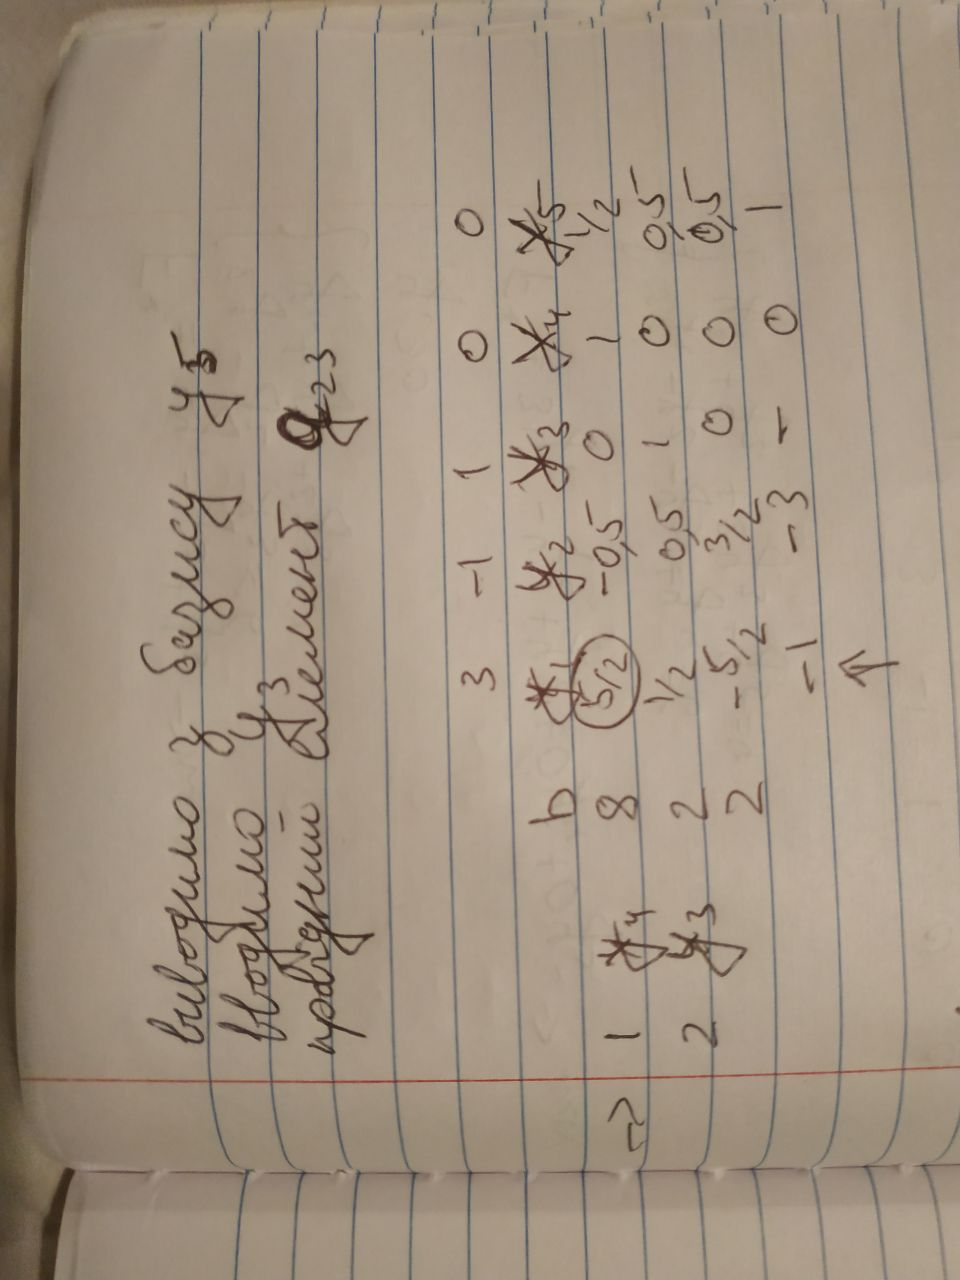 виводимо з базису y5
вводимо y3
провідний елемент a23
3 -1 1 0 0
b y1 y2 y3 y4 y5
-> 1 y4 8 5/2 -0,5 0 1 1/2
2 y3 2 1/2 0,5 1 0 0,5
2 -5/2 3/2 0 0 0,5
-1 -3 - 0 1
↑